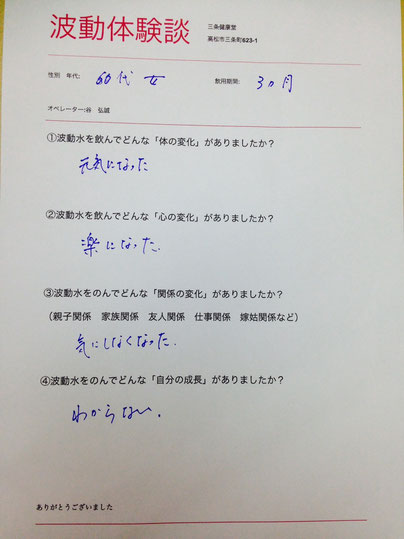 波動体験談
三条健康堂
高松市三条町623-1
性別 年代: 60代 女 飲用期間: 3ヵ月
オペレーター:谷 弘誠
①波動水を飲んでどんな「体の変化」がありましたか?
元気になった
②波動水を飲んでどんな「心の変化」がありましたか?
楽になった.
③波動水をのんでどんな「関係の変化」がありましたか?
(親子関係 家族関係 友人関係 仕事関係 嫁姑関係など)
気にしなくなった.
④波動水をのんでどんな「自分の成長」がありましたか?
わからない.
ありがとうございました